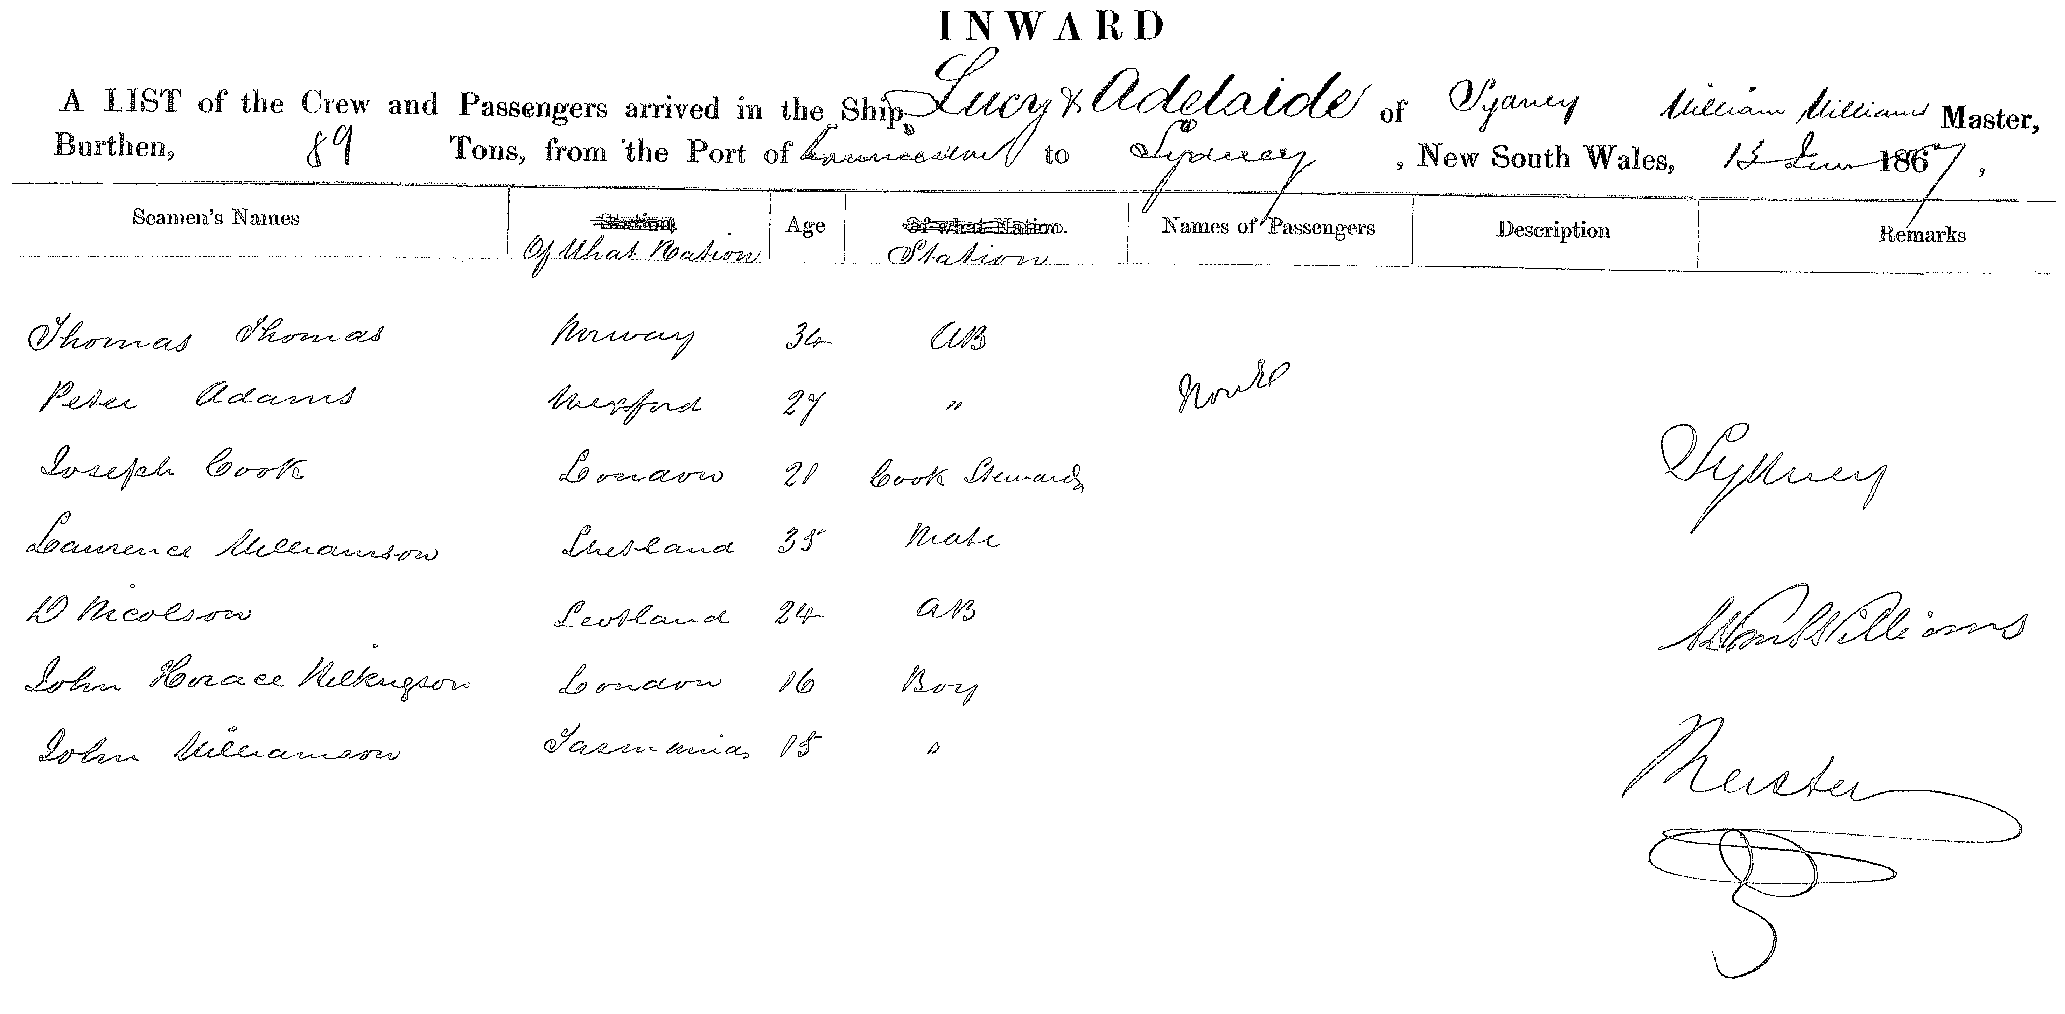 INWARD
A LIST of the Crew and Passengers arrived in the Ship Lucy & Adelaide of Sydney William Williams Master,
Burthen, 89 Tons, from the Port of Launceston to Sydney, New South Wales, 15 1867,
Seamen's Names Station Age Of what Nation. Names of Passengers Description Remarks
Of What Nation Station
Thomas Thomas Norway 34 AB
Peter Adams Wexford 27 " None
Joseph Cook London 21 Cook Steward
Sydney
Laurence Williamson Shetland 35 Mate
D Nicolson Scotland 24 AB
Wm Williams
John Horace Wilkinson London 16 Boy
John Williamson Tasmania 15 "
Master